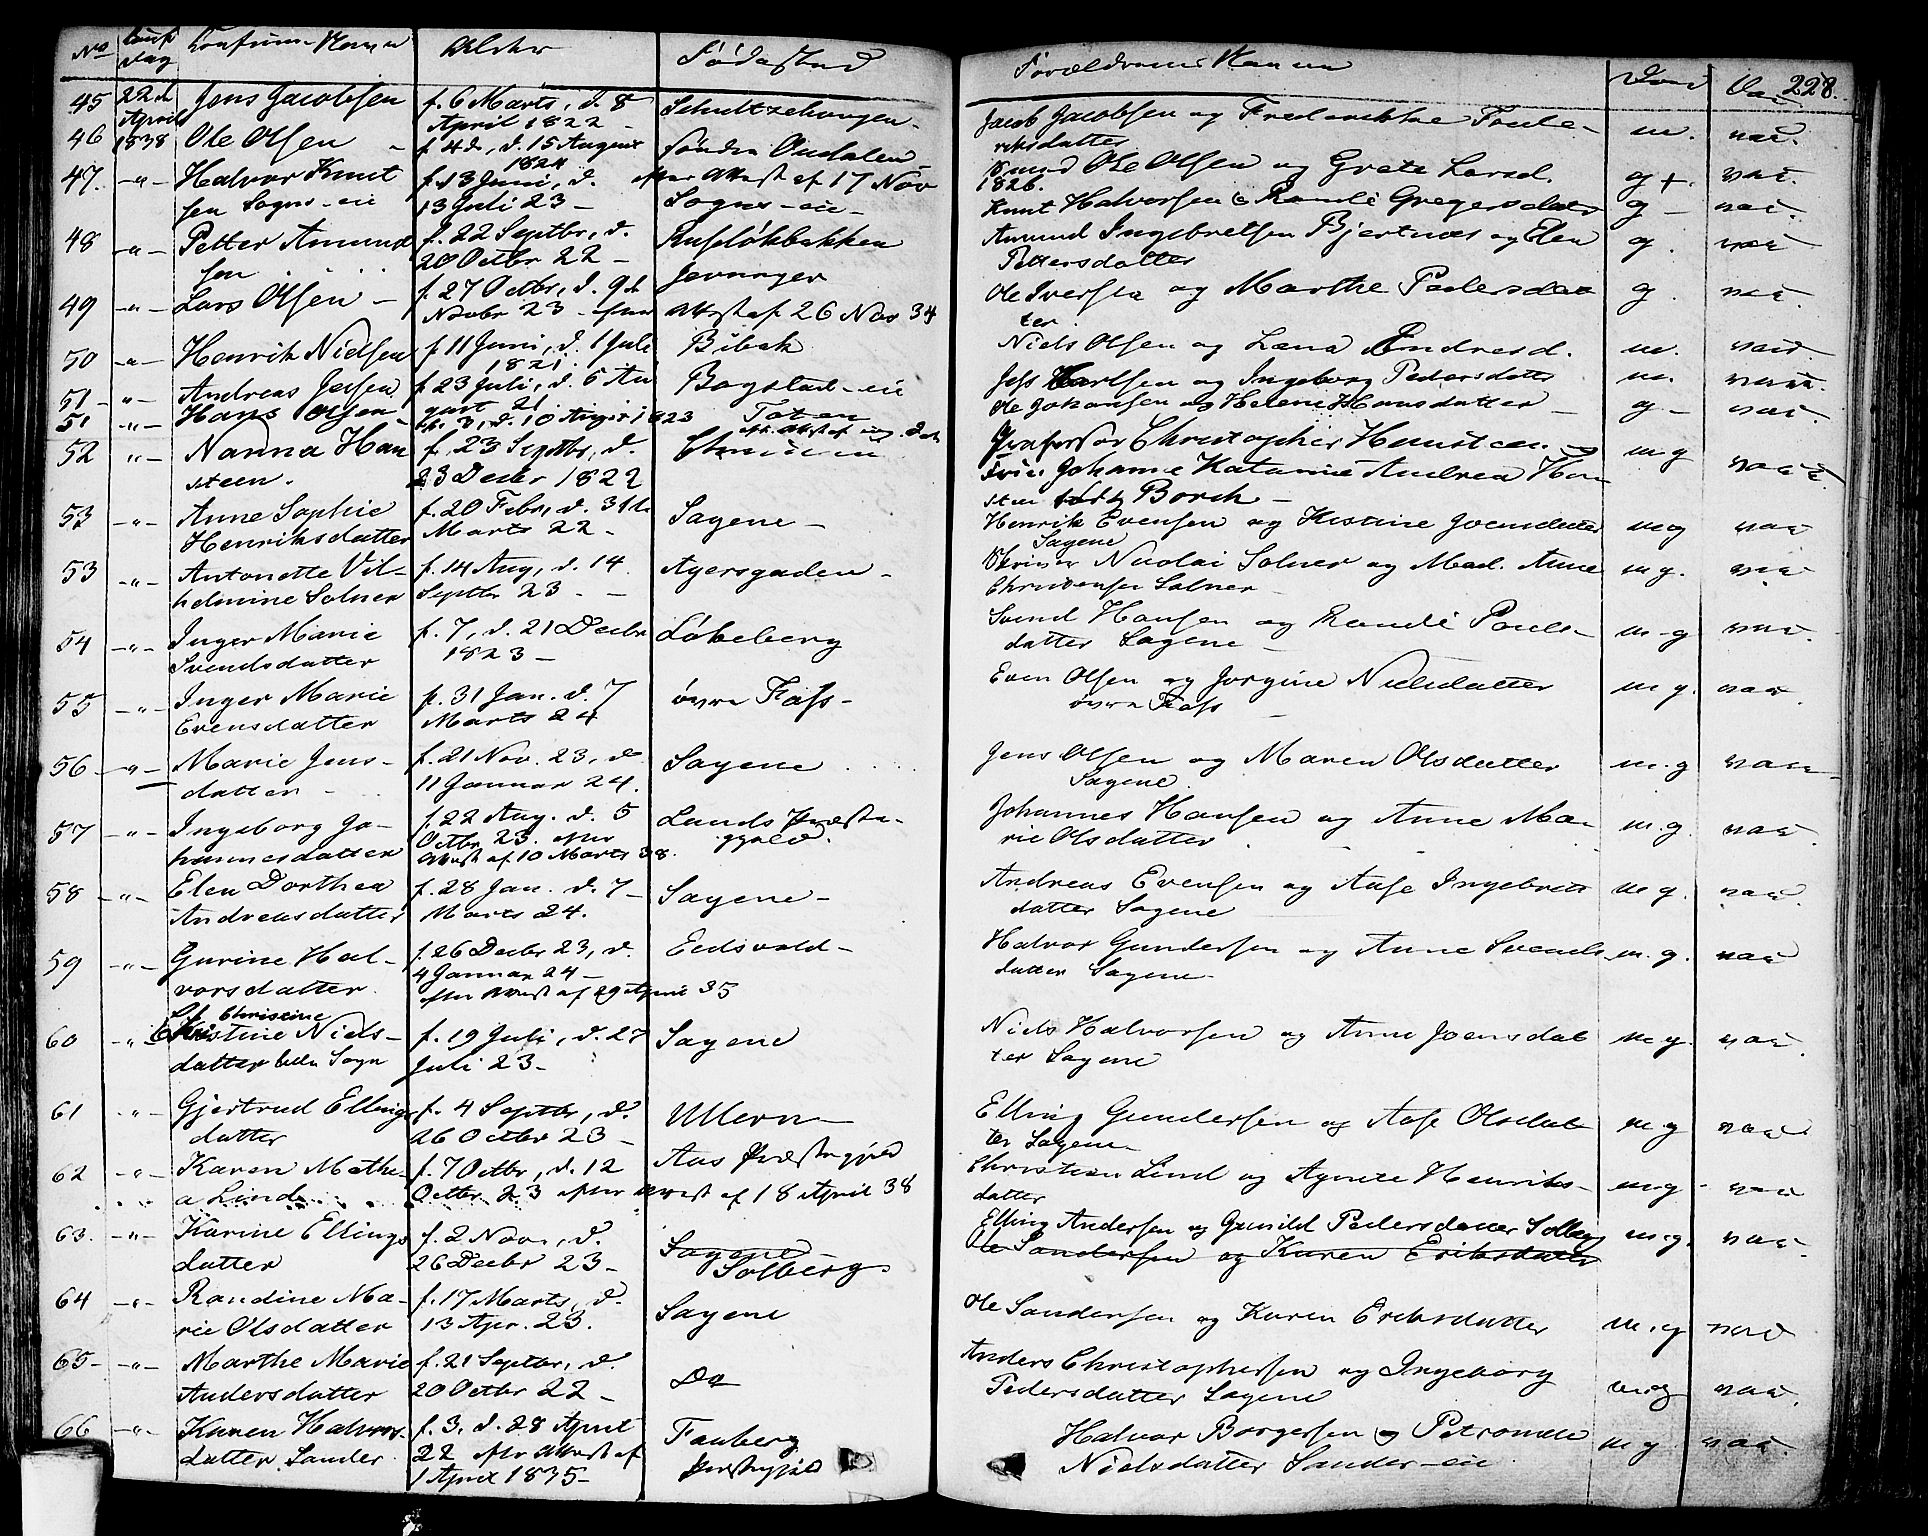 No Conf. Dag Confirm. Navn Alder Fødested Forældrenes Navne 228.
45 22d April 1838 Jens Jacobsen f. 6 Marts, d. 8 April 1822 Schultzehaugen Jacob Jacobsen og Frederikke Frederiksdatter m. vac.
46 Ole Olsen f. 4de, d. 15 August 1824 Søndre Audalen Ole Olsen og Grete Larsd. g +. vac.
47. -"- Halvor Knutsen Sogns-eie f. 13 Juni, d. 13 Juli 23 Sogns-eie Knut Halvorsen & Randi Gregersdatter g vac.
efter Attest af 17 Nov 1826.
48 -"- Petter Amundsen f. 22 Septbr, d. 20 Octbr 22 Rusløkbakken Amund Ingebretsen Bjertnæs og Elen Pettersdatter g. vac
49 -"- Lars Olsen f. 27 Octbr, d. 9de Novbr 23 efter Attest af 26 Nov 34 Jevnager Ole Iversen og Marthe Pedersdatter g. vac.
50 -"- Henrik Nielsen f 11 Juni, d. 1 Juli 1821. Bibak Niels Olsen og Lena Andresd. m. vac.
51 -"- Andreas Jessen f 23 Juli, d. 5 August 21 Bogstad-eie Jess Karlsen og Ingeborg Pedersdatter m. vac.
51 -"- Hans Olsen d. 10 August 1823 Toten Ole Johansen og Helene Hansdatter g vac
52 -"- Nanna Hansteen. f. 23 Septbr, d. 23 Decbr 1822 Professor Christopher Hansteen og Frue Johanne Katarine Andrea Hansteen født Borch m g vac.
53 -"- Anne Sophie Henriksdatter f. 20 Febr, d. 31te Marts 22 Sagene Henrik Evensen og Kistine Joensdatter Sagene m g vac
53 -"- Antonette Vilhelmine Solner f. 14 Aug, d. 14 Septbr 23 Agersgaden Nicolai Solner og Mad. Anne Christensen Solner m g. vac
54 -"- Inger Marie Svendsdatter f. 7, d. 21 Decbr 1823 Løkeberg Svend Hansen og Randi Poulsdatter Sagene m-g vac.
55 -"- Inger Marie Evensdatter f. 31 Jan. d. 7 Marts 24 øvre Foss Even Olsen og Jorgine Nielsdatter øvre Foss m g. vac
56 -"- Marie Jensdatter f. 21 Nov. 23, d 11 Januar 24. Sagene Jens Olsen og Maren Olsdatter Sagene m. g vac
57 -"- Ingeborg Johannesdatter f. 22 Aug. d. 5 Octbr 23. efter Attest af 10 Marts 38. Lands Præstegjeld. Johannes Hansen og Anne Marie Olsdatter m. g. vac
58 -"- Elen Dorthea Andreasdatter f. 28 Jan. d. 7 Marts 24. Sagene Andreas Evensen og Aase Ingebretsdatter Sagene m g. vac.
59 -"- Gurine Halvorsdatter. f. 26 Decbr 23, d. 4 Januar 24 efter Attest af 29 April 35 Eidsvold Halvor Gundersen og Anne Svendsdatter Sagene m. g. vac
60 -"- Christine Kristine Nielsdatter Lille Sogn f. 19 Juli, d. 27 Juli 23 Sagene Niels Halvorsen og Anne Joensdatter Sagene m g. vac.
61 -"- Gjertrud Ellingsdatter f. 4 Septbr, d. 26 Octbr 23 Ullern Elling Gundersen og Aase Olsdatter Sagene m g vac
62 -"- Karen Mathea Lind f. 7 Octbr, d. 12 Octbr 23 efter Attest af 18 April 38 Aas Præstegjeld Christian Lind og Agnete Henriksdatter m g vac
63. -"- Karine Ellingsdatter f. 2 Nov., d. 26 Decbr 23 Sagene Solberg Elling Andersen og Gunild Pedersdatter Solberg m. g. vac.
Ole Sandersen og Karen Eriksdatter
64 -"- Randine Marie Olsdatter f. 17 Marts, d. 13 Apr. 23. Sagene Ole Sandersen og Karen Eriksdatter m. g vac
65 -"- Marthe Marie Andersdatter f. 21 Septbr, d. 20 Octbr 22 Do Anders Christophersen og Ingeborg Pedersdatter Sagene m g vac.
66 -"- Karen Halvorsdatter Sander f. 3, d. 28 April 22 efter Attest af 1 April 1835 Fauberg Præstegjeld Halvor Borgersen og Petronele Nielsdatter Sander-eie m g. vac.